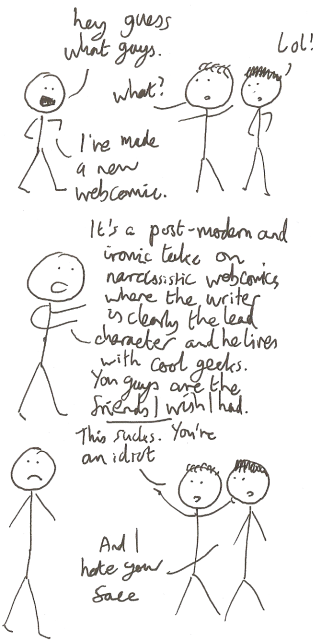 hey guess
what guys.
Lol!
what?
I've made
a new
webcomic.
It's a post-modern and
ironic take on
narcissistic webcomics
where the writer
is clearly the lead
character and he lives
with cool geeks.
You guys are the
friends I wish I had.
This sucks. You're
an idiot
And I
hate your
face